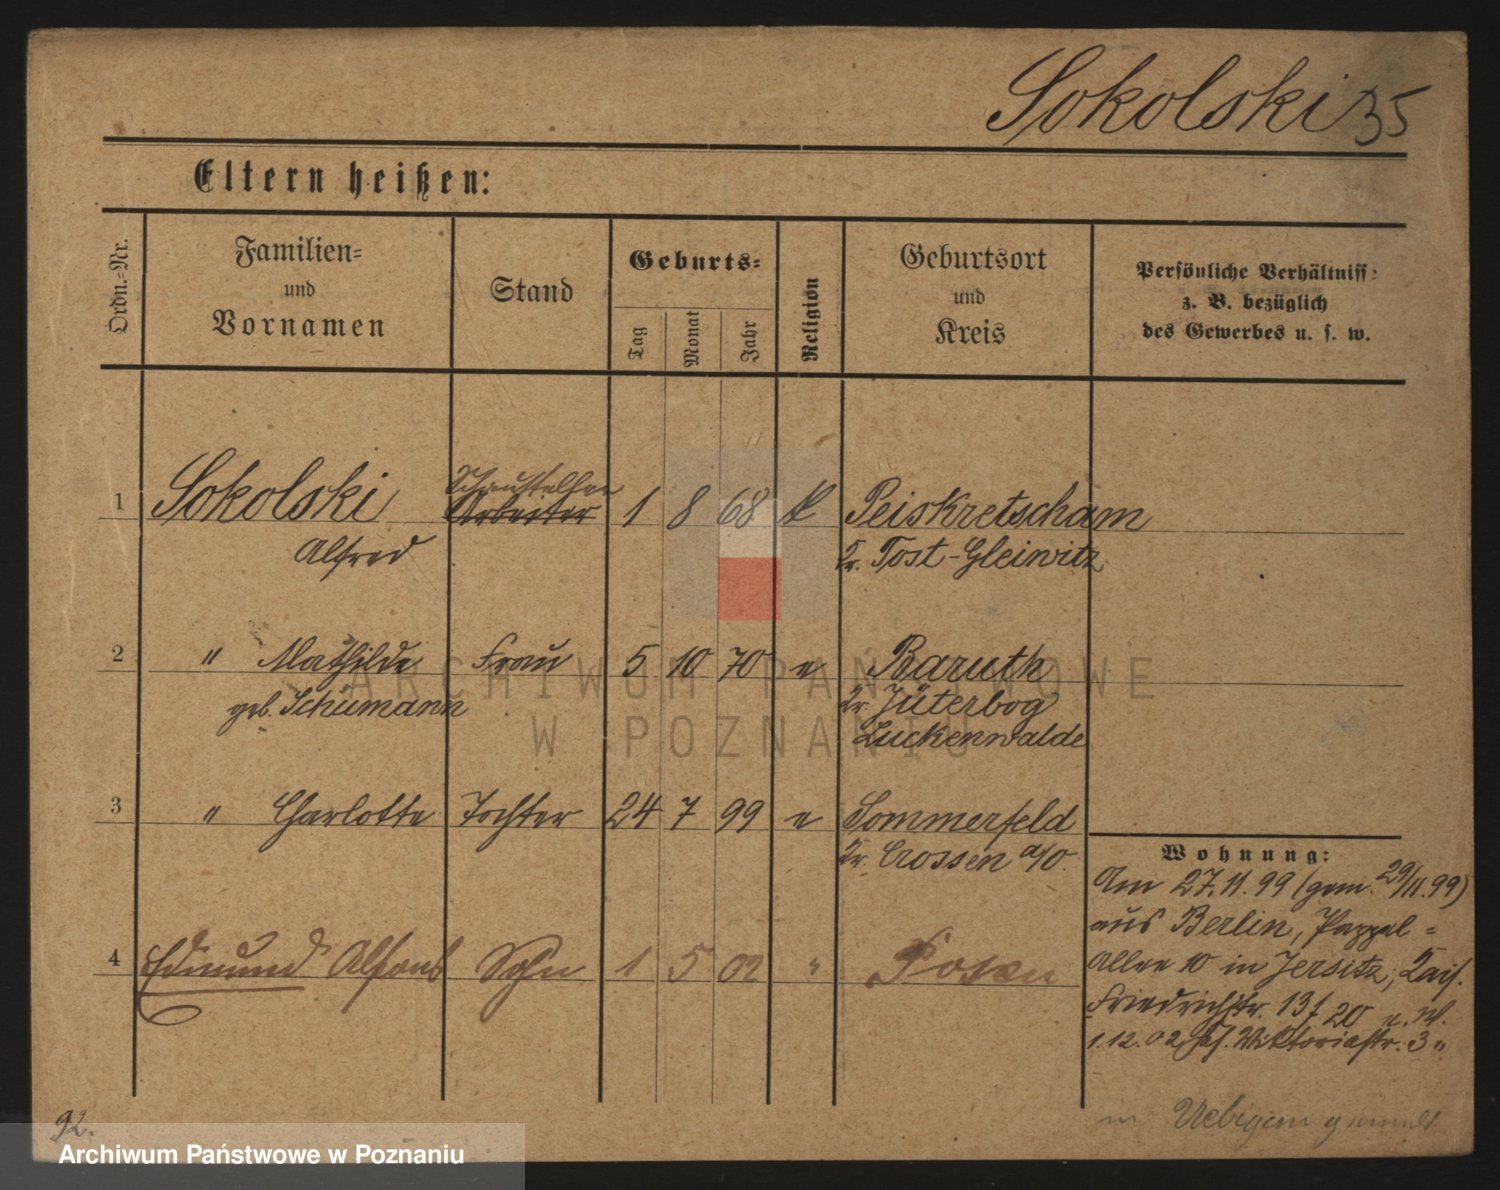 Sokolski 35
Eltern heißen:
Ordn.-Nr.
Familien-
und
Vornamen
Stand
Geburts-
Tag
Monat
Jahr
Religion
Geburtsort
und
Kreis
Persönliche Verhältniss:
z. B. bezüglich
des Gewerbes u. s. w.
1 Sokolski Schausteller Arbeiter 1 8 68 k Peiskretscham
Alfred Kr. Tost-Gleiwitz
2 " Mathilde Frau 5 10 70 e Baruth
geb. Schümann Kr. Jüterbog
Luckenwalde
3 " Charlotte Tochter 24 7 99 e Sommerfeld
Kr. Crossen a/O.
4 Edmund Alfons Sohn 1 5 02 " Posen
Wohnung:
Am 27.11.99 (gem. 29/11.99)
aus Berlin, Pappel-
Allee 10 in Jersitz,
Friedrichstr. 20
1.12.02 Viktoriastr. 3
92.
ARCHIWUM PAŃSTWOWE
W POZNANIU
Archiwum Państwowe w Poznaniu